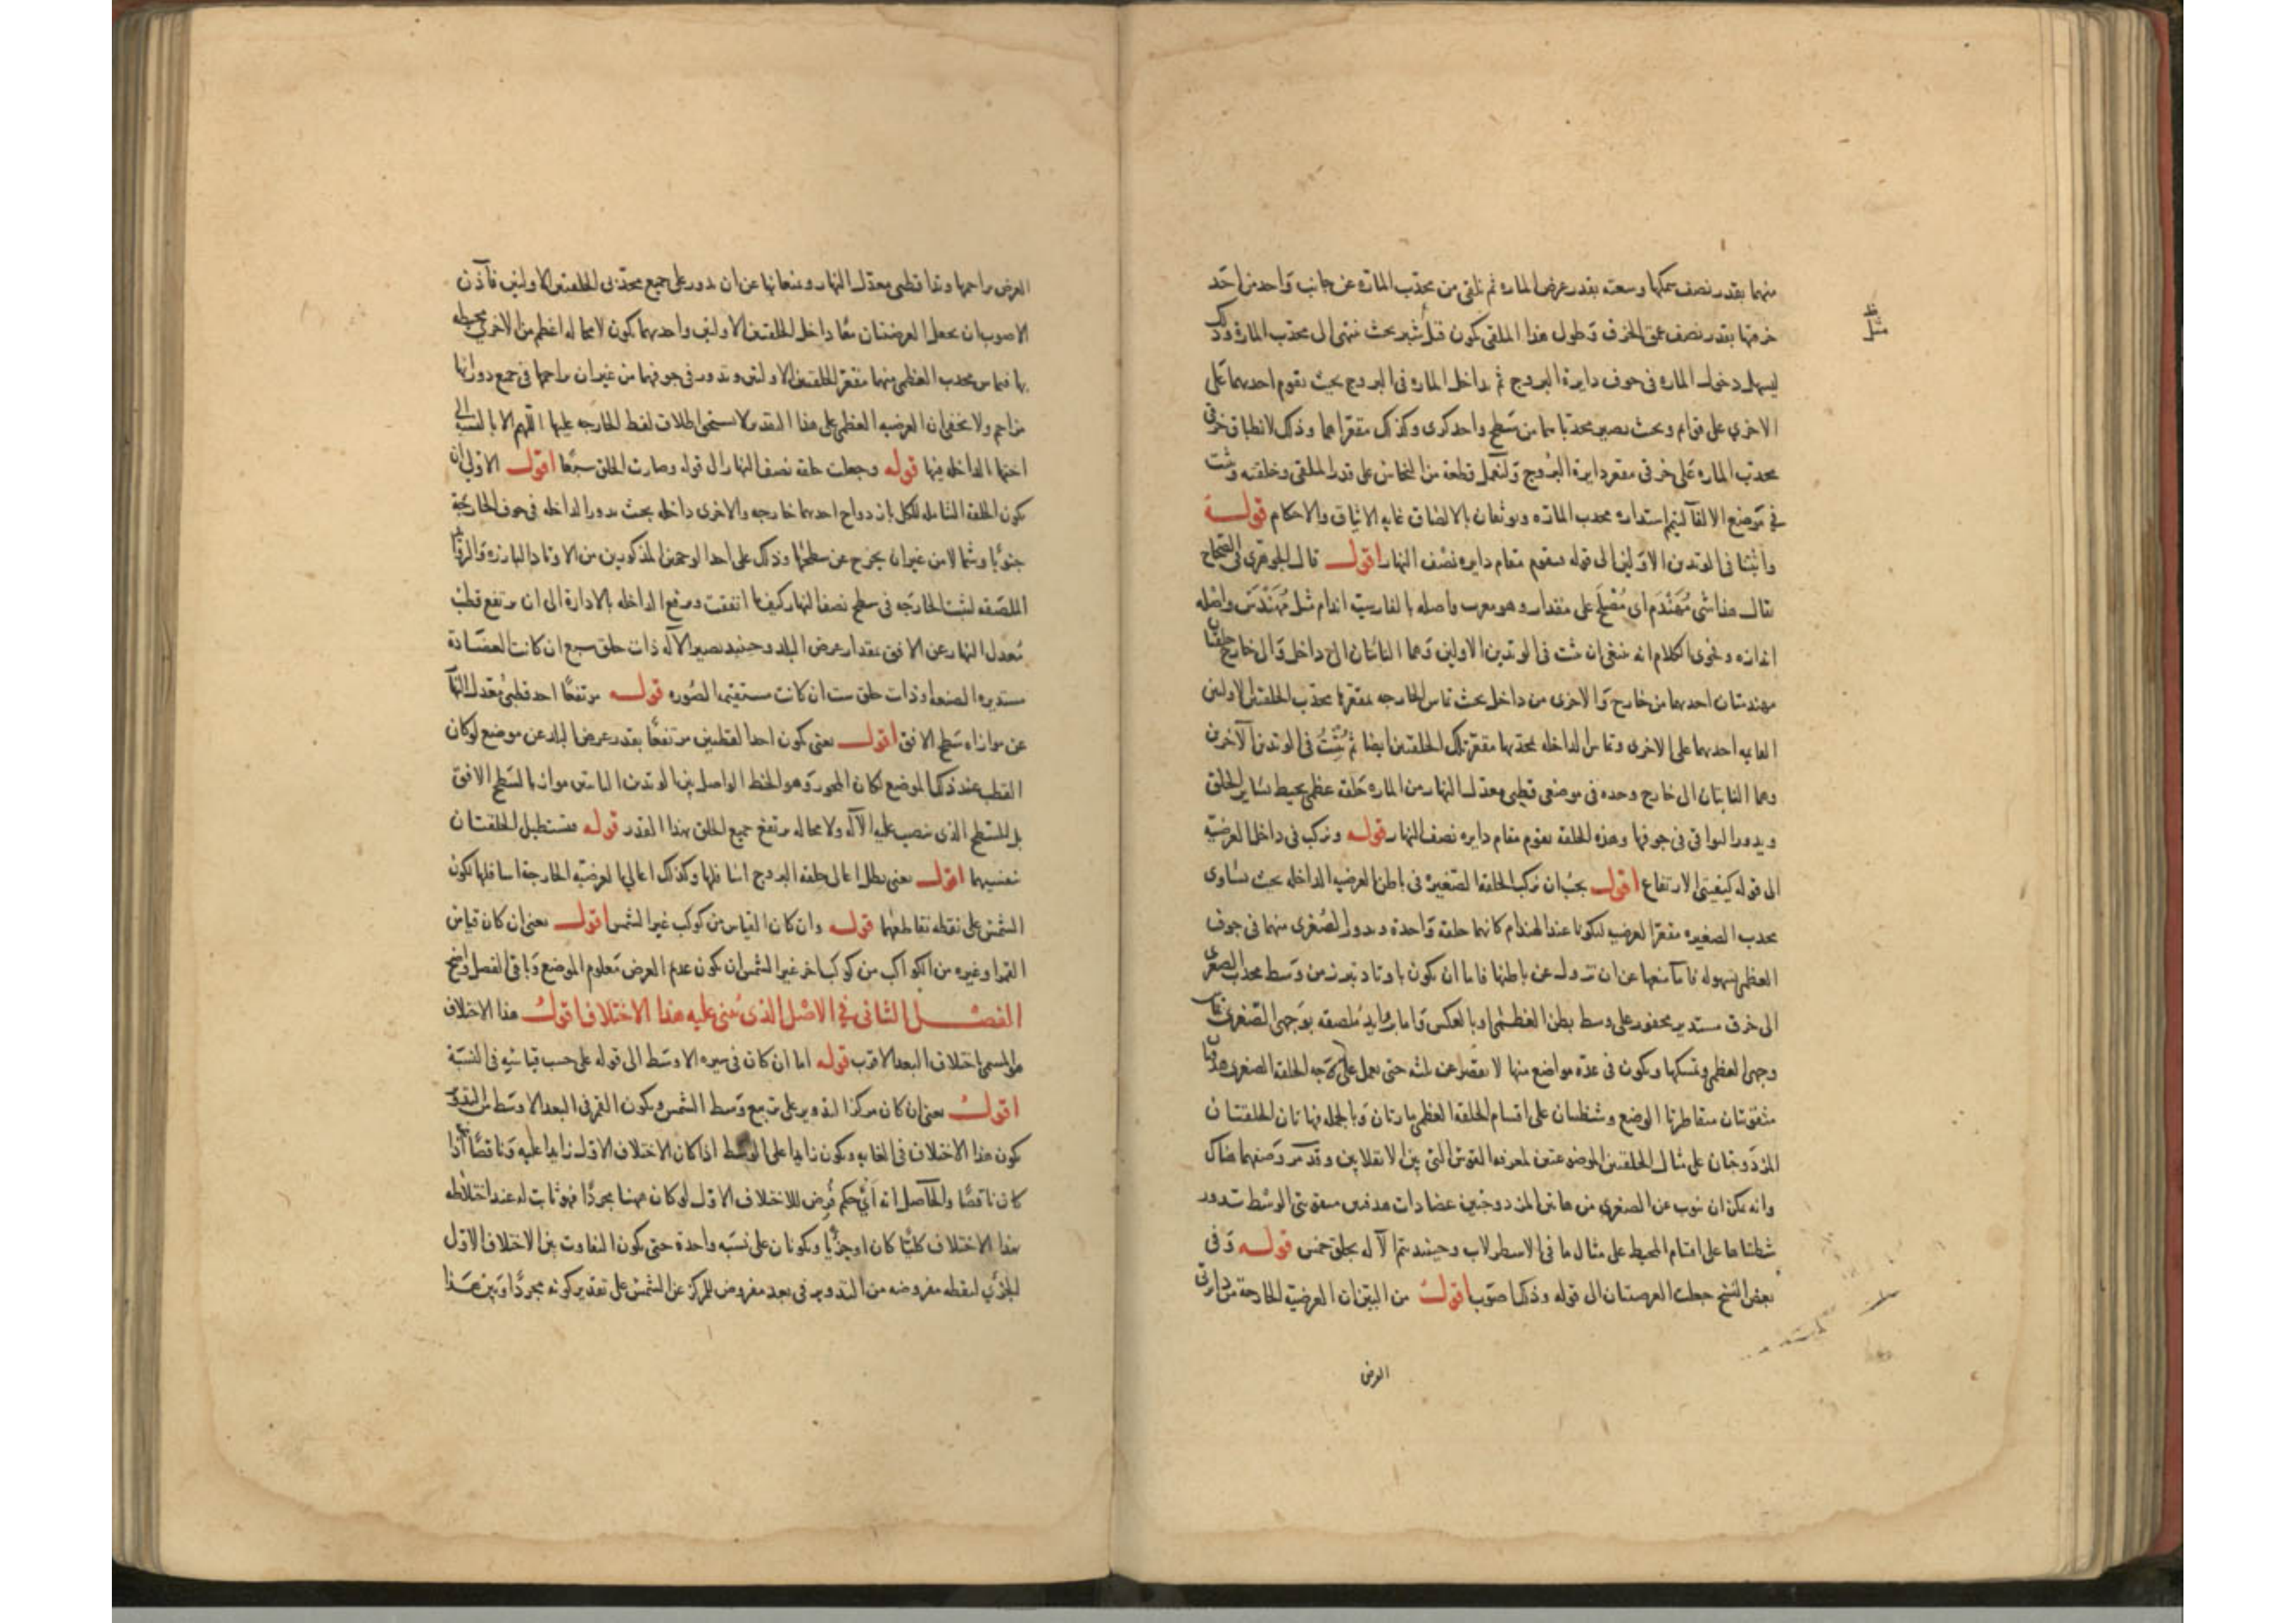 منهما بقدر نصف سمكها وسعته بقدر عرض المارة ثم نلقى من محدب المارة عن جانب واحد من احد
خرقها بقدر نصف عمق الخرق وطول هذا الملقى يكون قدر شبر بحيث ينتهى الى محدب المارة وذلك
ليسهل دخول المارة فى جوف دايرة البروج ثم يداخل المارة فى البروج بحيث تقوم احديهما على
الاخرى على قوام وبحيث يصير محدباهما من سطح واحد كرى وكذلك مقعراهما وذلك لانطباق خرقى
محدب المارة على خرقى مقعر دايرة البروج ولتعمل قطعة من النحاس على قدر الملقى وخلقته وتثبت
فى موضع الالقآ ليتم استدارة محدب المارة ويوثقان بالالصاق غاية الايثاق والاحكام قوله
واثبتا فى الوتدين الاولين الى قوله فيقوم مقام دايرة نصف النهار اقول قال الجوهرى فى الصحاح
يقال هذا شى مهندم اى مصلح على مقدار وهو معرب واصله بالفارسية اندام مثل مهندس واصله
اندازه وفحوى الكلام انه ينبغى ان يثبت فى الوتدين الاولين وهما الناتئان الى داخل والى خارج حلقتان
مهندمتان احديهما من خارج والاخرى من داخل بحيث تماس الخارجة بمقعرها محدب الحلقتين الاوليين
القايمة احديهما على الاخرى وتماس الداخلة بمحدبها مقعر تلك الحلقتين ايضا ثم يثبت فى الوتدين الآخرين
وهما الناتيان الى خارج وحده فى موضعى قطبى معدل النهار من المارة حلقة عظمى يحيط بساير الحلق
ويدور البواقى فى جوفها وهذه الحلقة تقوم مقام دايرة نصف النهار قوله ونركب فى داخل العرضية
الى قوله كيفيتى الارتفاع اقول يجب ان نركب الحلقة الصغيرة فى باطن العرضية الداخلة بحيث يساوى
محدب الصغيرة مقعر العرضية ليكونا عند الهندام كانهما حلقة واحدة ويدور الصغرى منهما فى جوف
العظمى بسهولة فاما منعها عن ان تزول عن باطنها فاما ان يكون باوتاد تبرز من وسط محدب الصغرى
الى خرق مستدير محفور على وسط بطن العظمى او بالعكس واما بزوايد ملصقة بوجهى الصغرى تماس
وجهى العظمى وتمسكها ويكون فى عدة مواضع منها لا يقصر عن ثلثه حتى يعمل على وجه الحلقة الصغرى هدفتان
مثقوبتان متقاطرتا الوضع وشظيتان على اقسام الحلقة العظمى مارتان وبالجملة فهاتان الحلقتان
المزدوجتان على مثال الحلقتين الموضوعتين لمعرفة القوس التى بين الانقلابين وقد مر وصفهما هناك
وانه يمكن ان ينوب عن الصغرى من هاتين المزدوجتين عضادات هدفتين مثقوبتى الوسط تدور
شظيتاها على اقسام المحيط على مثال ما فى الاسطرلاب وحينئذ يتم الآلة بحلق خمس قوله وفى
بعض النسخ جعلت العرضيتان الى قوله وذلك اصوب اقول من البين ان العرضية الخارجة من دايرتى
العرض
العرض يزاحمها وتدا قطبى معدل النهار ويمنعانها عن ان يدور على جميع محدبى الحلقتين الاوليين فاذن
الاصوب ان يجعل العرضيتان معا داخل الحلقتين الاوليين واحديهما يكون لا محالة اعظم من الاخرى محيطة
بها فيماس محدب العظمى منهما مقعر الحلقتين الاوليين وتدور فى جوفهما من غير ان يزاحمها فى جميع دورانها
مزاحم ولا يخفى ان العرضية العظمى على هذا التقدير لا يستحق اطلاق لفظ الخارجة عليها اللهم الا بالنسبة الى
اختها الداخلة فيها قوله وجعلت حلقة نصف النهار الى قوله وصارت الحلق سبعا اقول الاولى ان
يكون الحلقة الشاملة للكل بازدواج احديهما خارجة والاخرى داخلة بحيث يدور الداخلة فى جوف الخارجة
جنوبا وشمالا من غير ان يخرج عن سطحها وذلك على احد الوجهين المذكورين من الاوتاد البارزة والزوايد
الملصقة لتثبت الخارجة فى سطح نصف النهار كيف ما اتفقت ويرتفع الداخلة بالادارة الى ان يرتفع قطب
معدل النهار عن الافق بمقدار عرض البلد وحينئذ يصير الآلة ذات حلق سبع ان كانت العضادة
مستديرة الصنعة او ذات حلق ست ان كانت مستقيمة الصورة قوله مرتفعا احد قطبى معدل النهار
عن موازاة سطح الافق اقول يعنى يكون احد القطبين مرتفعا بقدر عرض البلد عن موضع لو كان
القطب عند ذلك الموضع لكان المحور وهو الخط الواصل بين الوتدين الثابتين موازيا لسطح الافق
بل للسطح الذى ينصب عليه الآلة ولا محالة يرتفع جميع الحلق بهذا القدر قوله فتستظل الحلقتان
نفسيهما اقول يعنى يظل اعالى حلقة البروج اسافلها وكذلك اعالى العرضية الخارجة اسافلها لكون
الشمس على نقطة تقاطعهما قوله وان كان القياس من كوكب غير الشمس اقول يعنى ان كان قياس
القمر او غيره من الكواكب من كوكب اخر غير الشمس ان يكون عديم العرض معلوم الموضع وباقى الفصل واضح
الفصل الثانى فى الاصل الذى يبنى عليه هذا الاختلاف اقول هذا الاختلاف
هو المسمى اختلاف البعد الاقرب قوله اما ان كان فى سيره الاوسط الى قوله على حسب قياسيه فى النسبة
اقول يعنى ان كان مركز التدوير على تربيع وسط الشمس ويكون القمر فى البعد الاوسط من التدوير
يكون هذا الاختلاف فى الغاية ويكون زايدا على الوسط اذا كان الاختلاف الاول زايدا عليه وناقصا اذا
كان ناقصا والحاصل انه اى حكم فرض للاختلاف الاول لو كان ههنا مجردا فهو ثابت له عند اختلاطه
بهذا الاختلاف كليا كان او جزئيا ويكونان على نسبة واحدة حتى يكون التفاوت بين الاختلاف الاول
الجزئى لنقطة مفروضة من التدوير فى بعد مفروض للمركز عن الشمس على تقدير كونه مجردا وبين هذا